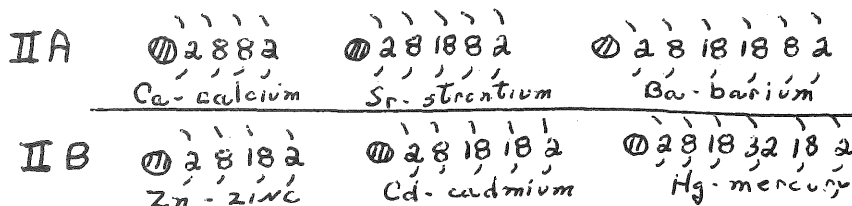 IIA 2 8 8 2 2 8 18 8 2 2 8 18 18 8 2
Ca - calcium Sr - strontium Ba - barium
IIB 2 8 18 2 2 8 18 18 2 2 8 18 32 18 2
Zn - zinc Cd - cadmium Hg - mercury